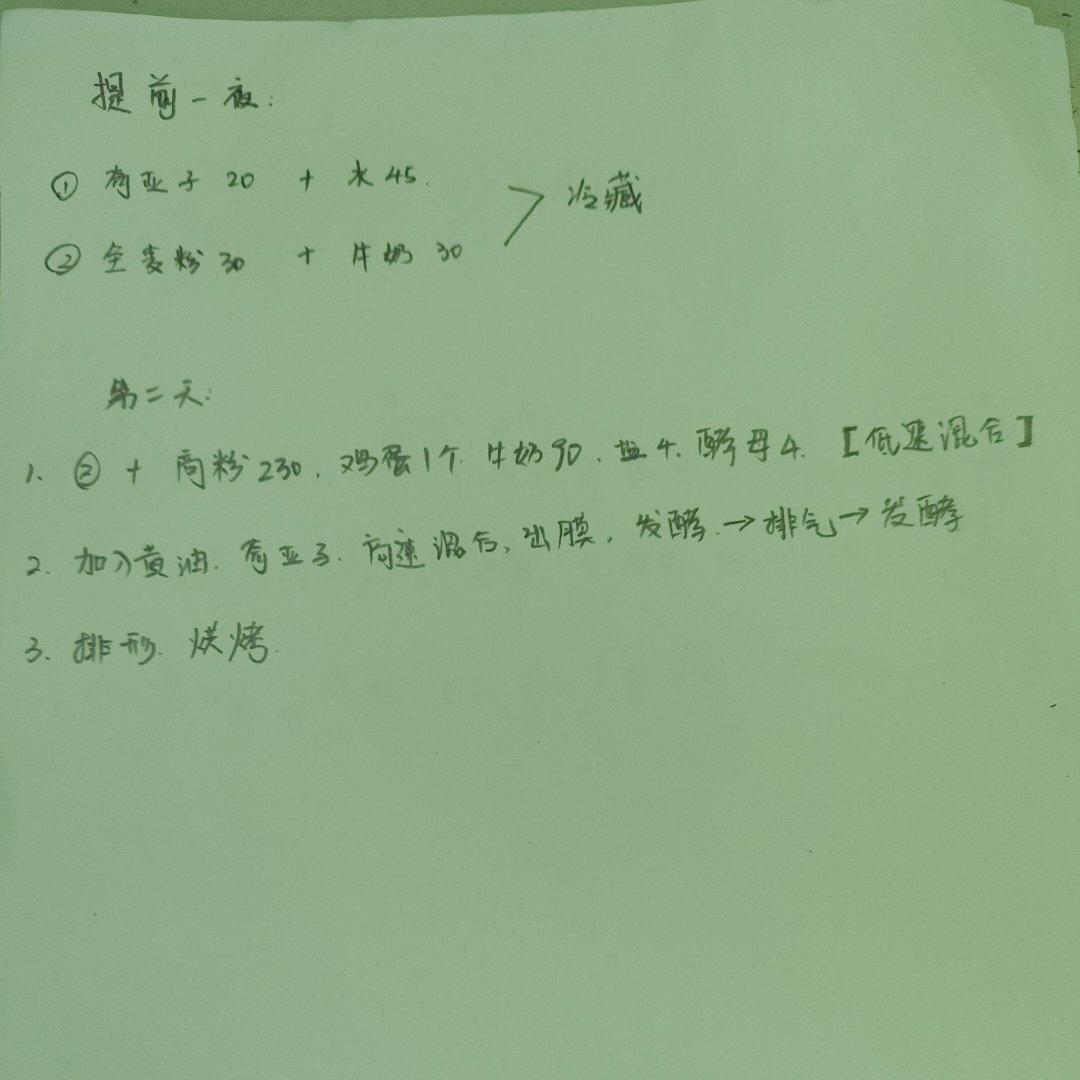 提前一夜:
① 奇亚子 20 + 水 45.
② 全麦粉 30 + 牛奶 30
> 冷藏
第二天:
1. ② + 高粉 230, 鸡蛋 1个. 牛奶 90、盐 4. 酵母 4. 【低速混合】
2. 加入黄油. 奇亚子. 高速混合, 出膜, 发酵. → 排气 → 发酵
3. 排形. 烘烤.